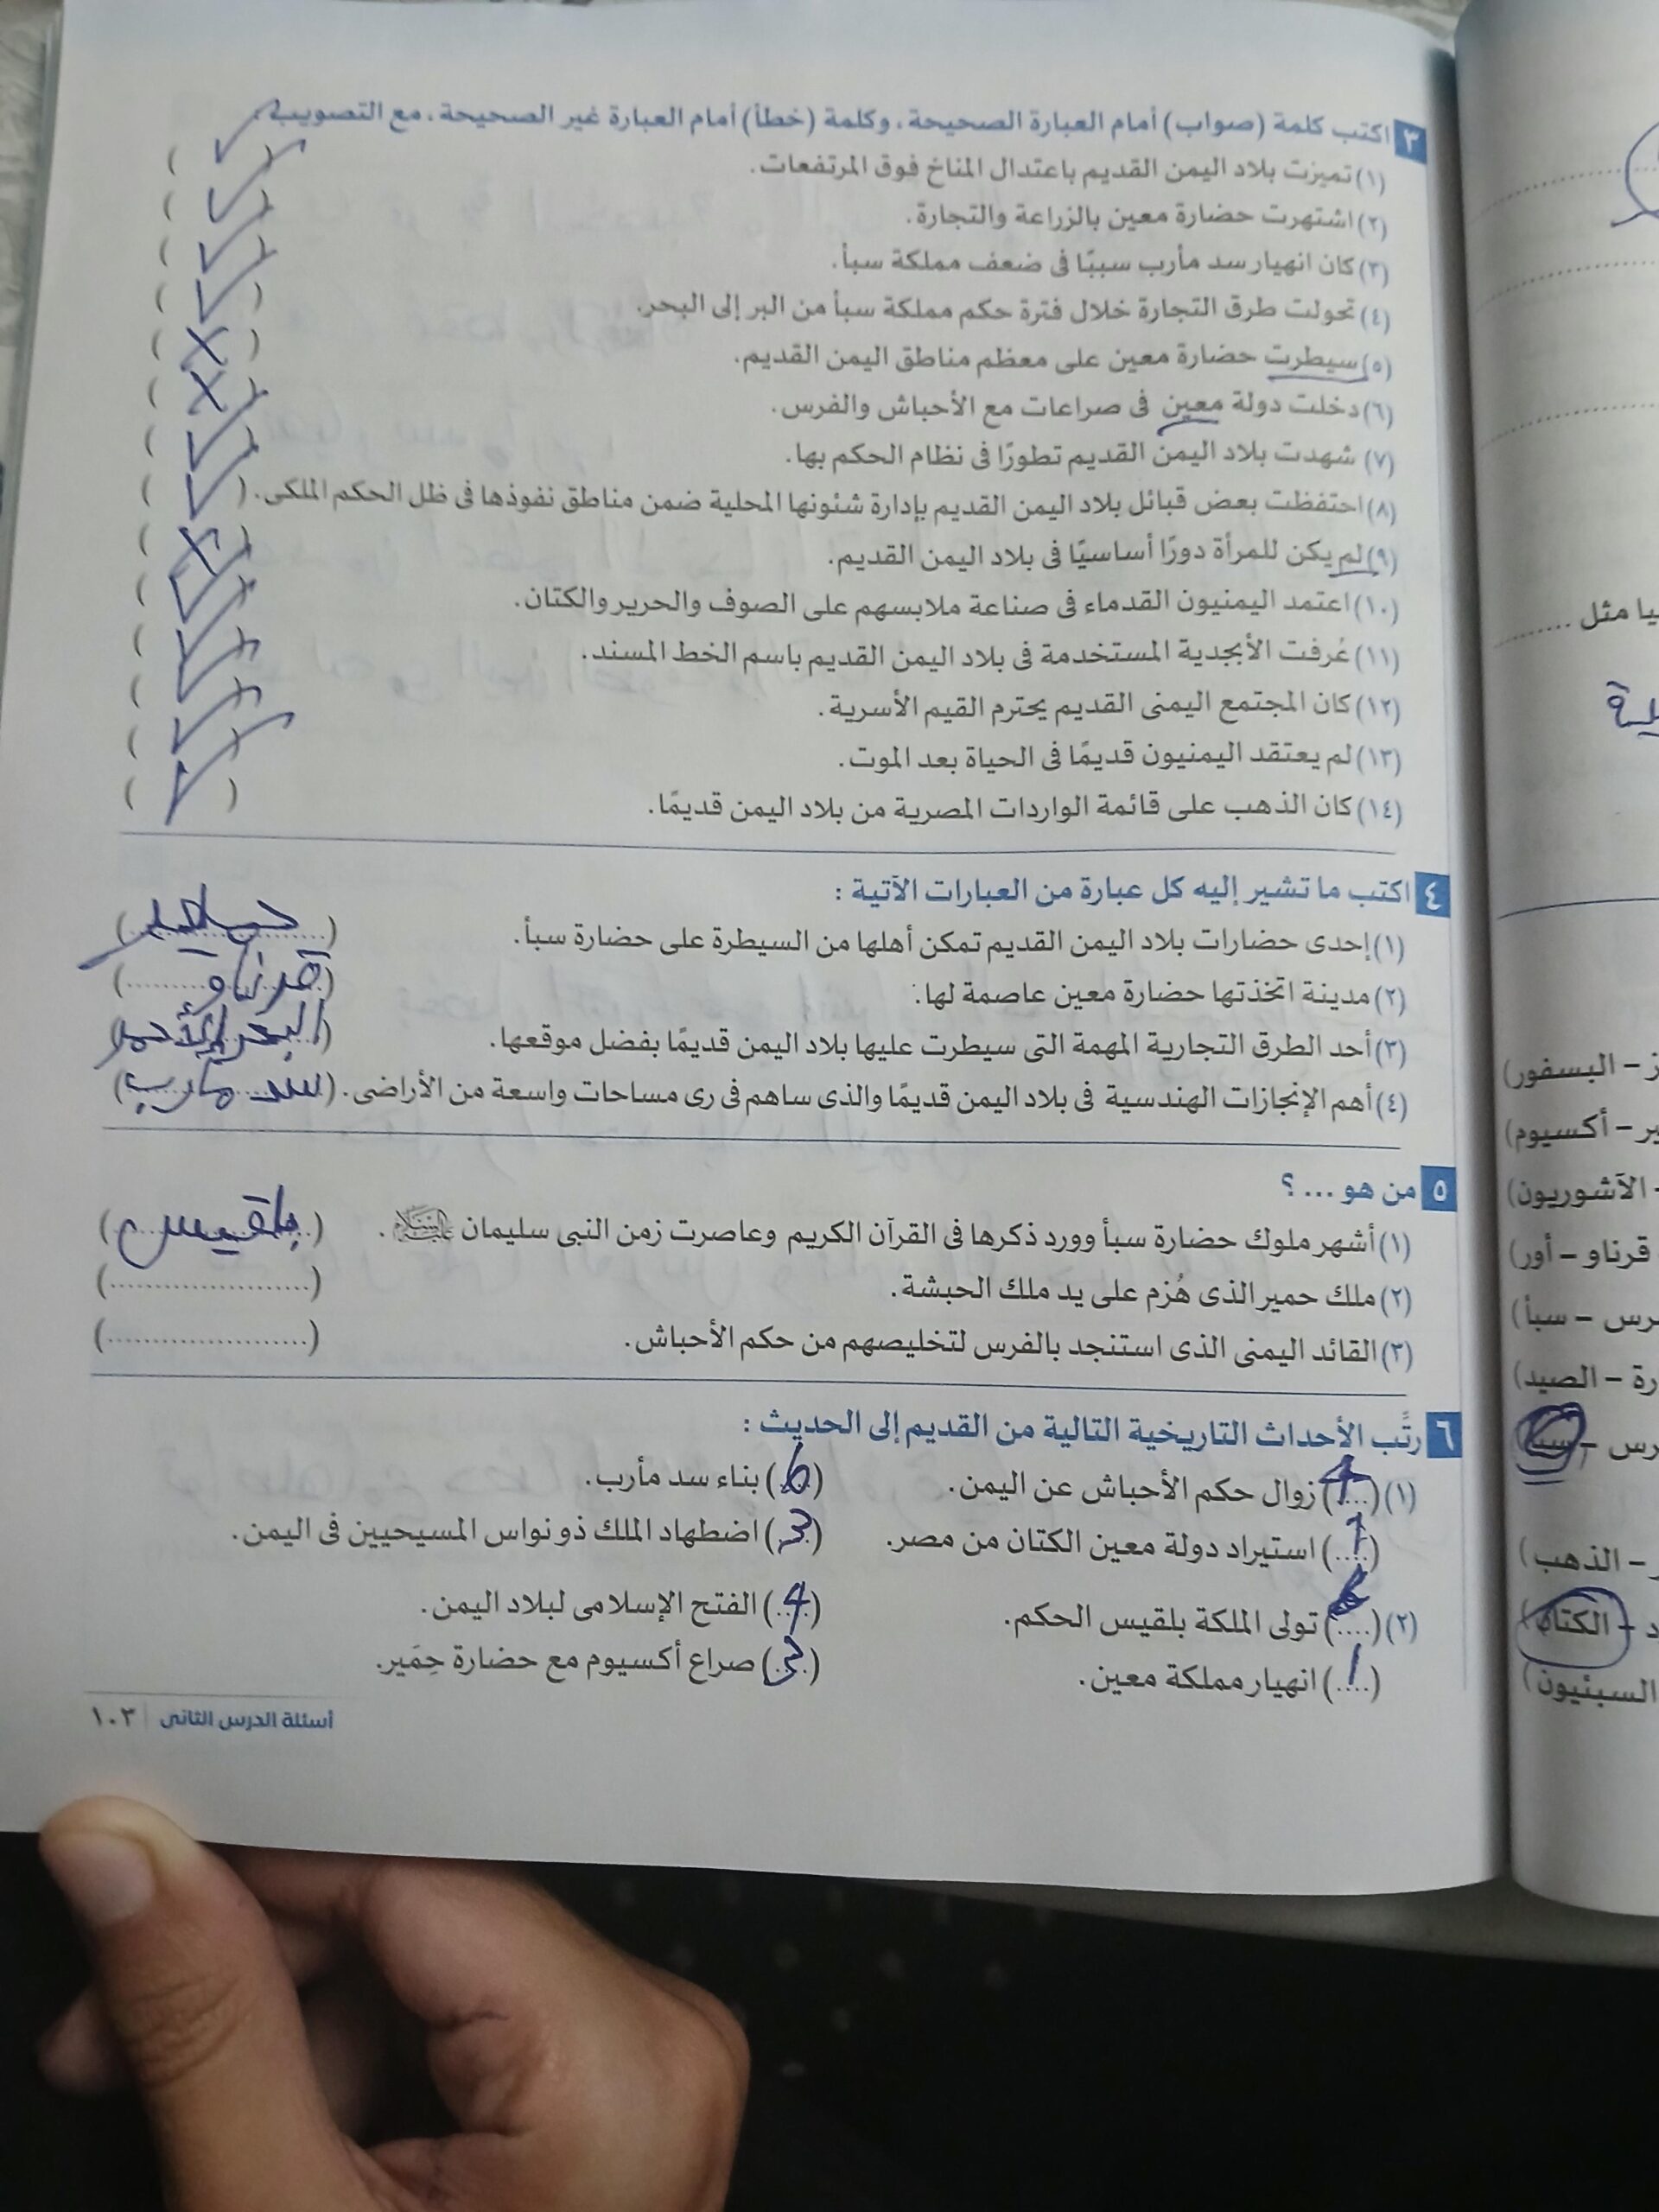 ٣ اكتب كلمة (صواب) أمام العبارة الصحيحة، وكلمة (خطأ) أمام العبارة غير الصحيحة، مع التصويب.
(١) تميزت بلاد اليمن القديم باعتدال المناخ فوق المرتفعات. ( ✓ )
(٢) اشتهرت حضارة معين بالزراعة والتجارة. ( ✓ )
(٣) كان انهيار سد مأرب سببًا فى ضعف مملكة سبأ. ( ✓ )
(٤) تحولت طرق التجارة خلال فترة حكم مملكة سبأ من البر إلى البحر. ( ✓ )
(٥) سيطرت حضارة معين على معظم مناطق اليمن القديم. ( X )
(٦) دخلت دولة معين فى صراعات مع الأحباش والفرس. ( X )
(٧) شهدت بلاد اليمن القديم تطورًا فى نظام الحكم بها. ( ✓ )
(٨) احتفظت بعض قبائل بلاد اليمن القديم بإدارة شئونها المحلية ضمن مناطق نفوذها فى ظل الحكم الملكى. ( ✓ )
(٩) لم يكن للمرأة دورًا أساسيًا فى بلاد اليمن القديم. ( X )
(١٠) اعتمد اليمنيون القدماء فى صناعة ملابسهم على الصوف والحرير والكتان. ( ✓ )
(١١) عُرفت الأبجدية المستخدمة فى بلاد اليمن القديم باسم الخط المسند. ( ✓ )
(١٢) كان المجتمع اليمنى القديم يحترم القيم الأسرية. ( ✓ )
(١٣) لم يعتقد اليمنيون قديمًا فى الحياة بعد الموت. ( ✓ )
(١٤) كان الذهب على قائمة الواردات المصرية من بلاد اليمن قديمًا. ( ✓ )
٤ اكتب ما تشير إليه كل عبارة من العبارات الآتية :
(١) إحدى حضارات بلاد اليمن القديم تمكن أهلها من السيطرة على حضارة سبأ.
(٢) مدينة اتخذتها حضارة معين عاصمة لها. (قرناو)
(٣) أحد الطرق التجارية المهمة التى سيطرت عليها بلاد اليمن قديمًا بفضل موقعها. (البحر الأحمر)
(٤) أهم الإنجازات الهندسية فى بلاد اليمن قديمًا والذى ساهم فى رى مساحات واسعة من الأراضى. (سد مارب)
٥ من هو ... ؟
(١) أشهر ملوك حضارة سبأ وورد ذكرها فى القرآن الكريم وعاصرت زمن النبى سليمان عليه السلام. (بلقيس)
(٢) ملك حمير الذى هُزم على يد ملك الحبشة. (......................)
(٣) القائد اليمنى الذى استنجد بالفرس لتخليصهم من حكم الأحباش. (......................)
٦ رتِّب الأحداث التاريخية التالية من القديم إلى الحديث :
(١) (4) زوال حكم الأحباش عن اليمن. بناء سد مأرب.
(1) استيراد دولة معين الكتان من مصر. (3) اضطهاد الملك ذو نواس المسيحيين فى اليمن.
(٢) (....) تولى الملكة بلقيس الحكم. (4) الفتح الإسلامى لبلاد اليمن.
(1) انهيار مملكة معين. (3) صراع أكسيوم مع حضارة حِمَير.
أسئلة الدرس الثانى | ١٠٣
يا مثل ........
ز - البسفور)
ير - أكسيوم)
- الآشوريون)
قرناو - أور)
رس - سبأ)
رة - الصيد)
رس -
ر - الذهب)
د - الكتان)
السبئيون)